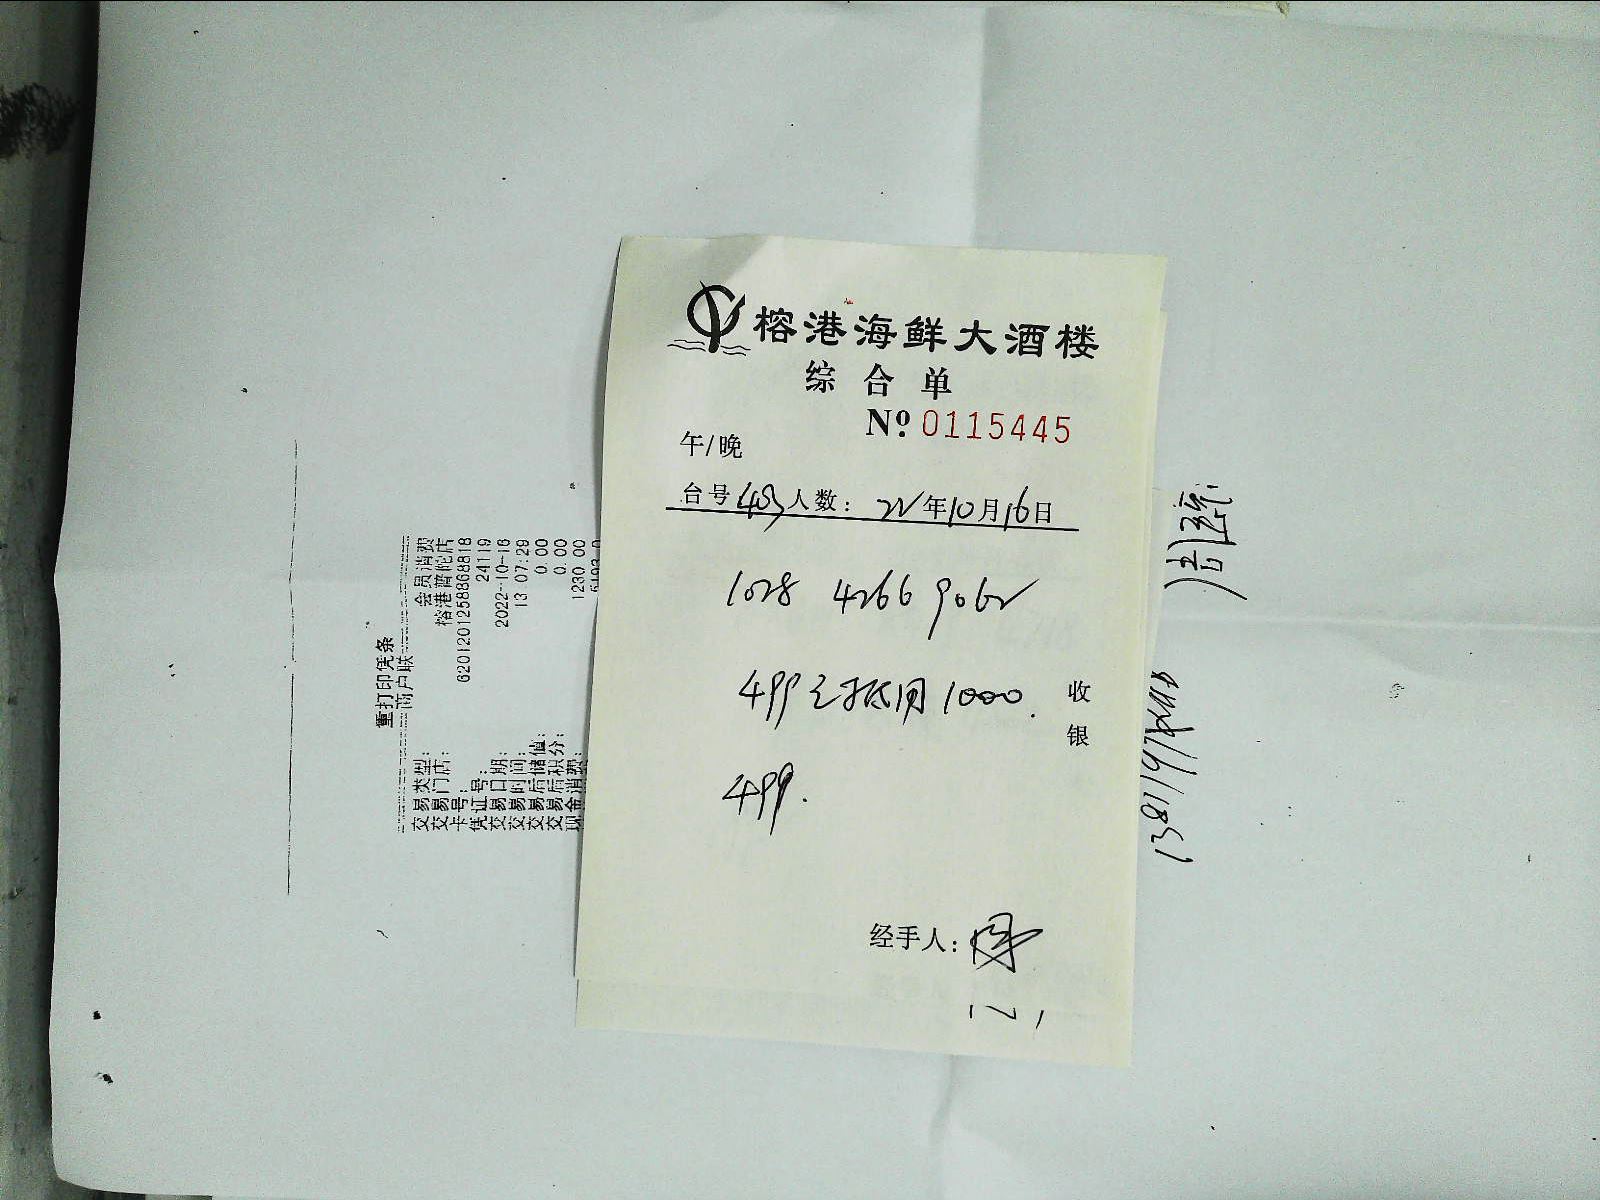 榕港海鲜大酒楼
综合单
Nº 0115445
午/晚
台号 403 人数: 22年10月16日
1028 4266 9062
499元抵用1000.
收银
499.
经手人:
重打印凭条
商户联
交易类型: 会员消费
交易门店: 榕港普陀店
卡号: 6201201258868818
凭证号: 24119
交易日期: 2022-10-16
交易时间: 13:07:29
交易后储值: 0.00
交易后积分: 0.00
现金消费: 1230.00